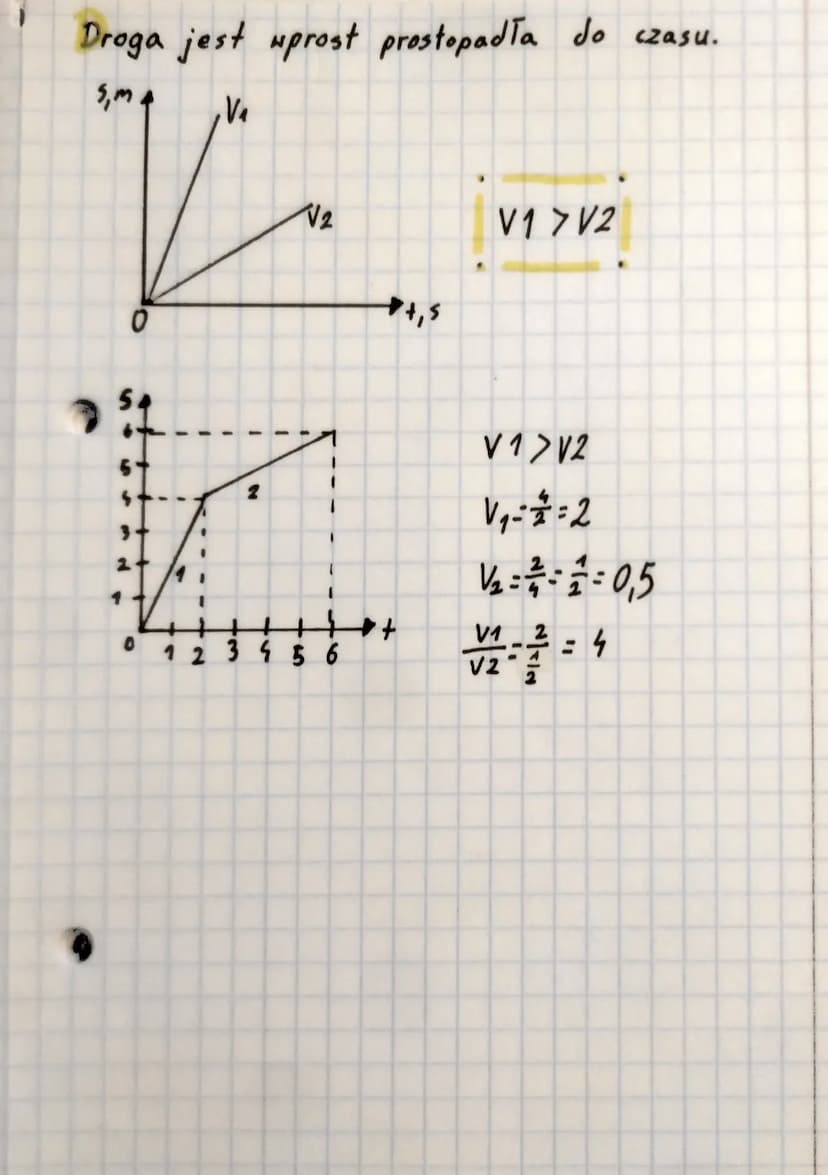 Droga jest wprost prostopadła do czasu.
s,m
V1
V2
V1 > V2
0
t,s
s
6
5
4
3
2
1
0
1
2
1 2 3 4 5 6
t
V1 > V2
V1 = 4/2 = 2
V2 = 2/4 = 1/2 = 0,5
V1/V2 = 2/(1/2) = 4